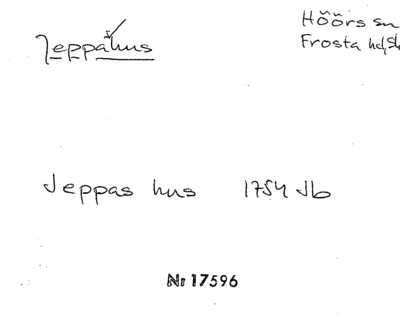 Jeppahus
Höörs sn
Frosta hd
Jeppas hus 1754 Jb
Nr 17596